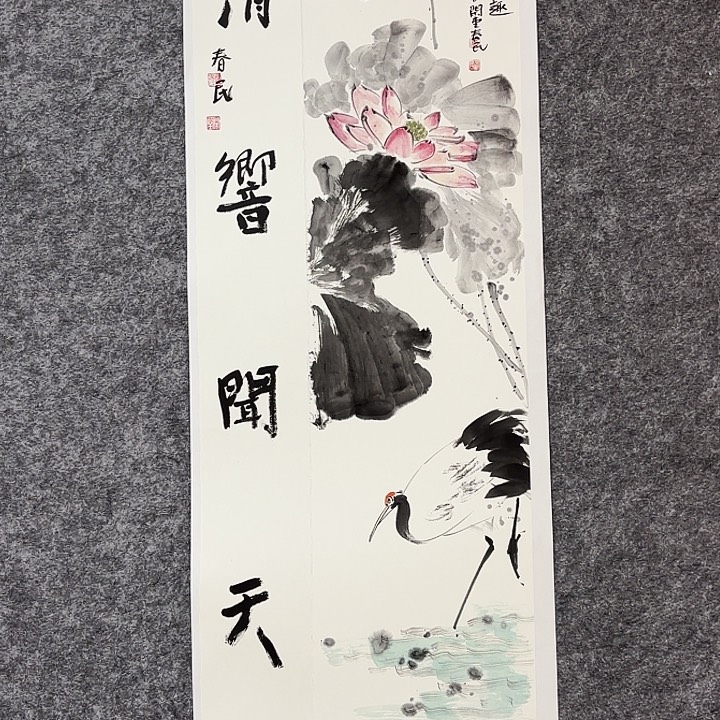 趣
春民
清響聞天
春民